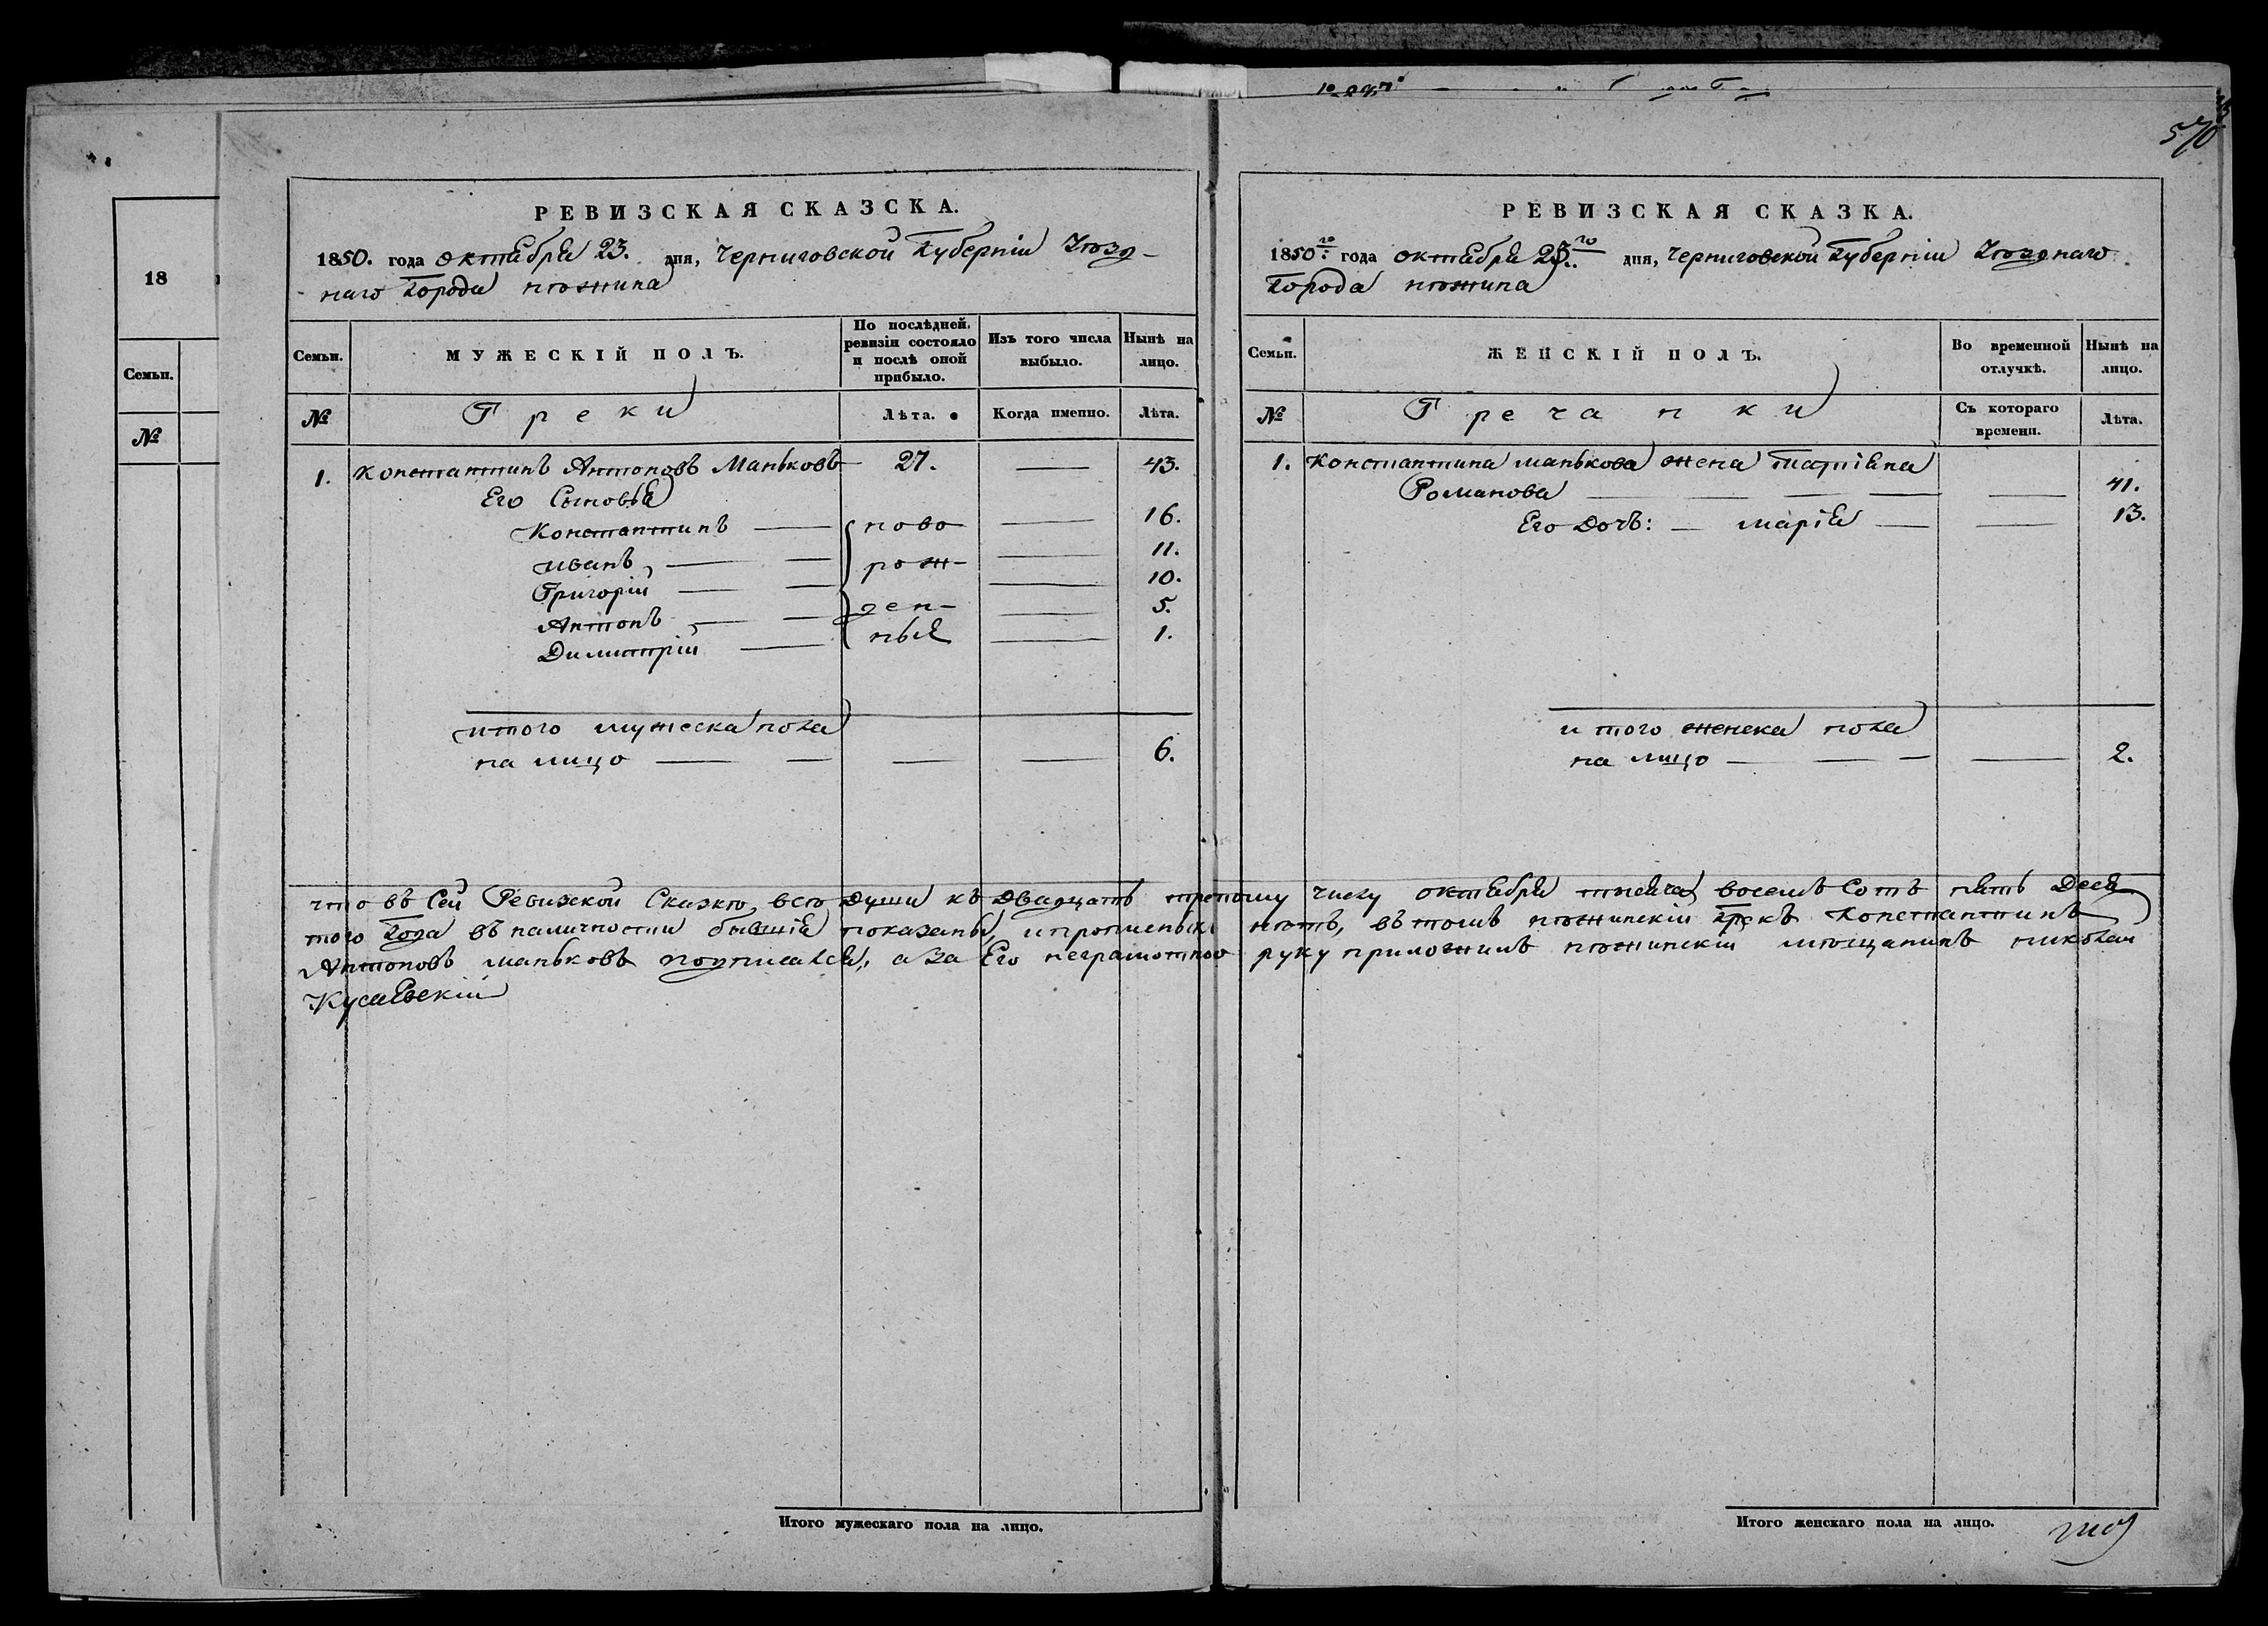 570
18
Семьи.
№
РЕВИЗСКАЯ СКАЗСКА.
1850. года октября 23. дня, Черниговской Губерніи Уѣзд-
наго Города нѣжина
Семьи.
МУЖЕСКІЙ ПОЛЪ.
По послѣдней ревизіи состояло и послѣ оной прибыло.
Изъ того числа выбыло.
Нынѣ на лицо.
№
Греки
Лѣта.
Когда именно.
Лѣта.
1. Константинъ Антоновъ Маньковъ — 27. — 43.
Его Сыновья
Константинъ — ново — 16.
иванъ — рож- — 11.
Григорій — 10.
Антонъ — ден- — 5.
Димитрій — ныя — 1.
итого мужеска пола
на лицо — — — — 6.
РЕВИЗСКАЯ СКАЗКА.
1850го года октября 23.го дня, Черниговской Губерніи Уѣзднаго
Города нѣжина
Семьи.
ЖЕНСКІЙ ПОЛЪ.
Во временной отлучкѣ.
Нынѣ на лицо.
№
Гречанки
Съ котораго времени.
Лѣта.
1. Константина манькова жена
Романова — — — — — 41.
Его дочь: — марія — — 13.
итого женска пола
на лицо — — — — 2.
что въ Сей Ревизской Сказкѣ, всѣ души къ двадцать третьому числу октября тысяча восемъ Сотъ пять Деся
того Года въ наличности бывшія показаны, и прописныхъ нѣтъ, въ томъ нѣжинскій грекъ Константинъ
Антоновъ маньковъ подписался, а за Его неграмотного руку приложилъ нѣжинскій мѣщанинъ николай
Итого мужескаго пола на лицо.
Итого женскаго пола на лицо.